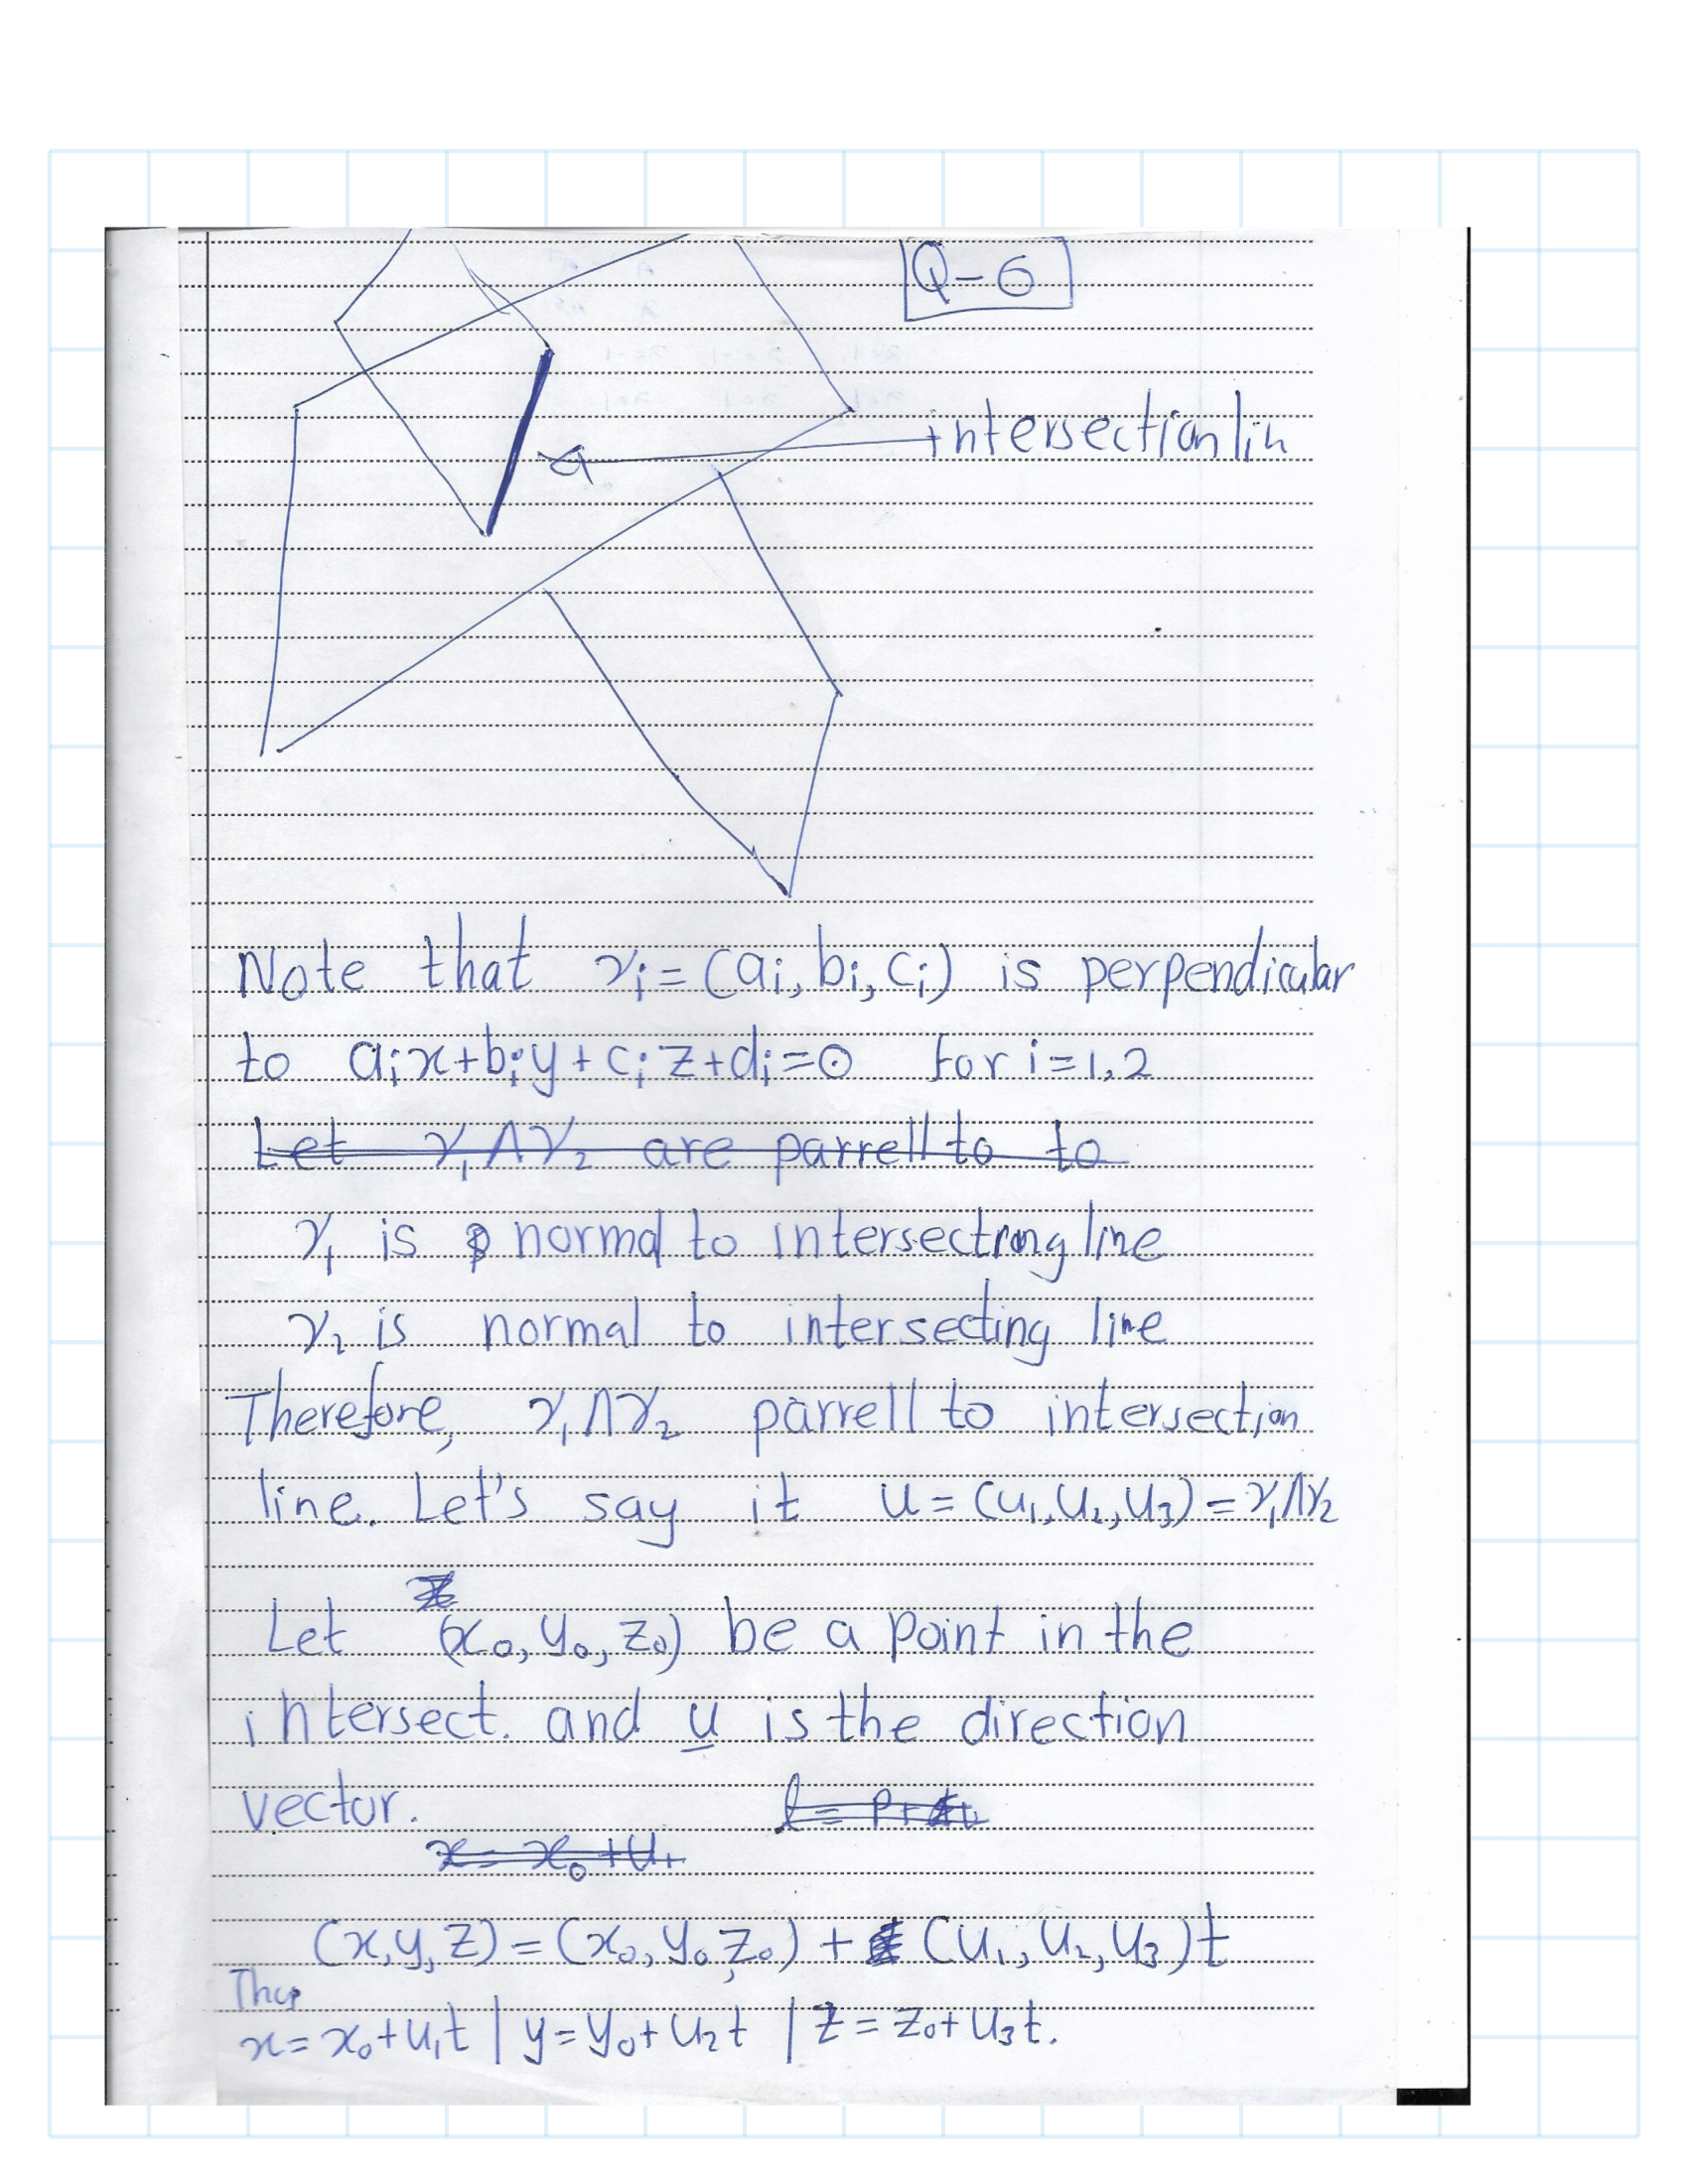 Q-6
intersection lin
Note that γᵢ = (aᵢ, bᵢ, cᵢ) is perpendicular
to aᵢx+bᵢy+cᵢz+dᵢ=0 for i=1,2
Let γ₁Λγ₂ are parrell to to
γ₁ is normal to intersectiong line
γ₂ is normal to intersecting line
Therefore, γ₁Λγ₂ parrell to intersection
line. Let's say it u = (u₁,u₂,u₃) = γ₁Λγ₂
Let (x₀, y₀, z₀) be a point in the
intersect. and u is the direction
vector.
x = x₀ + u₁
(x,y,z) = (x₀, y₀, z₀) + (u₁, u₂, u₃)t
Thus
x = x₀+u₁t | y = y₀+u₂t | z = z₀+u₃t.